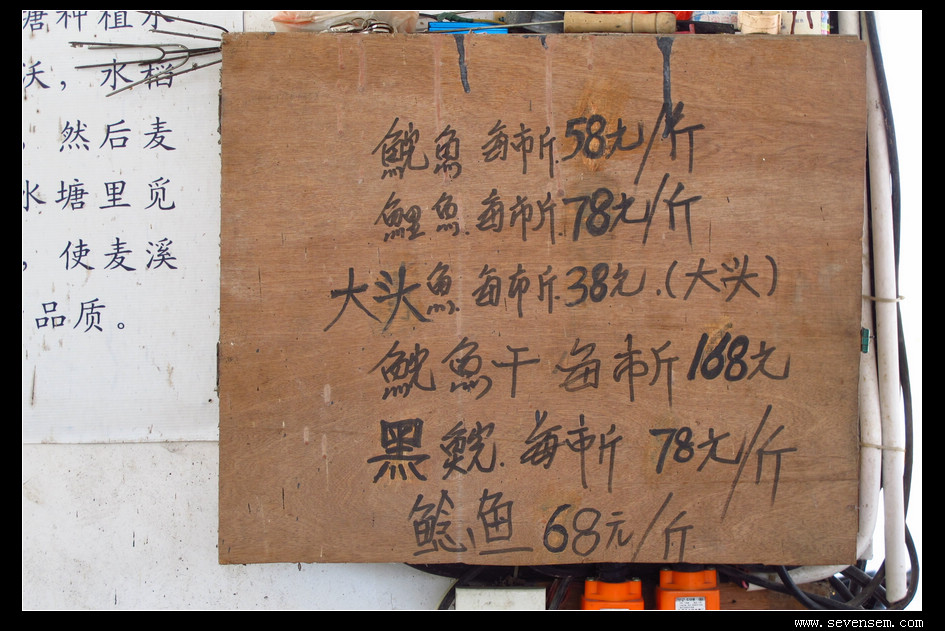 塘种植水
沃，水稻
然后麦
水塘里觅
，使麦溪
品质。
鯇魚 每市斤58元/斤
鯉魚.每市斤.78元/斤
大头魚.每市斤.38元.(大头)
鯇魚干 每市斤168元
黑鯇.每市斤 78元/斤
鲶鱼 68元/斤
www.sevensem.com